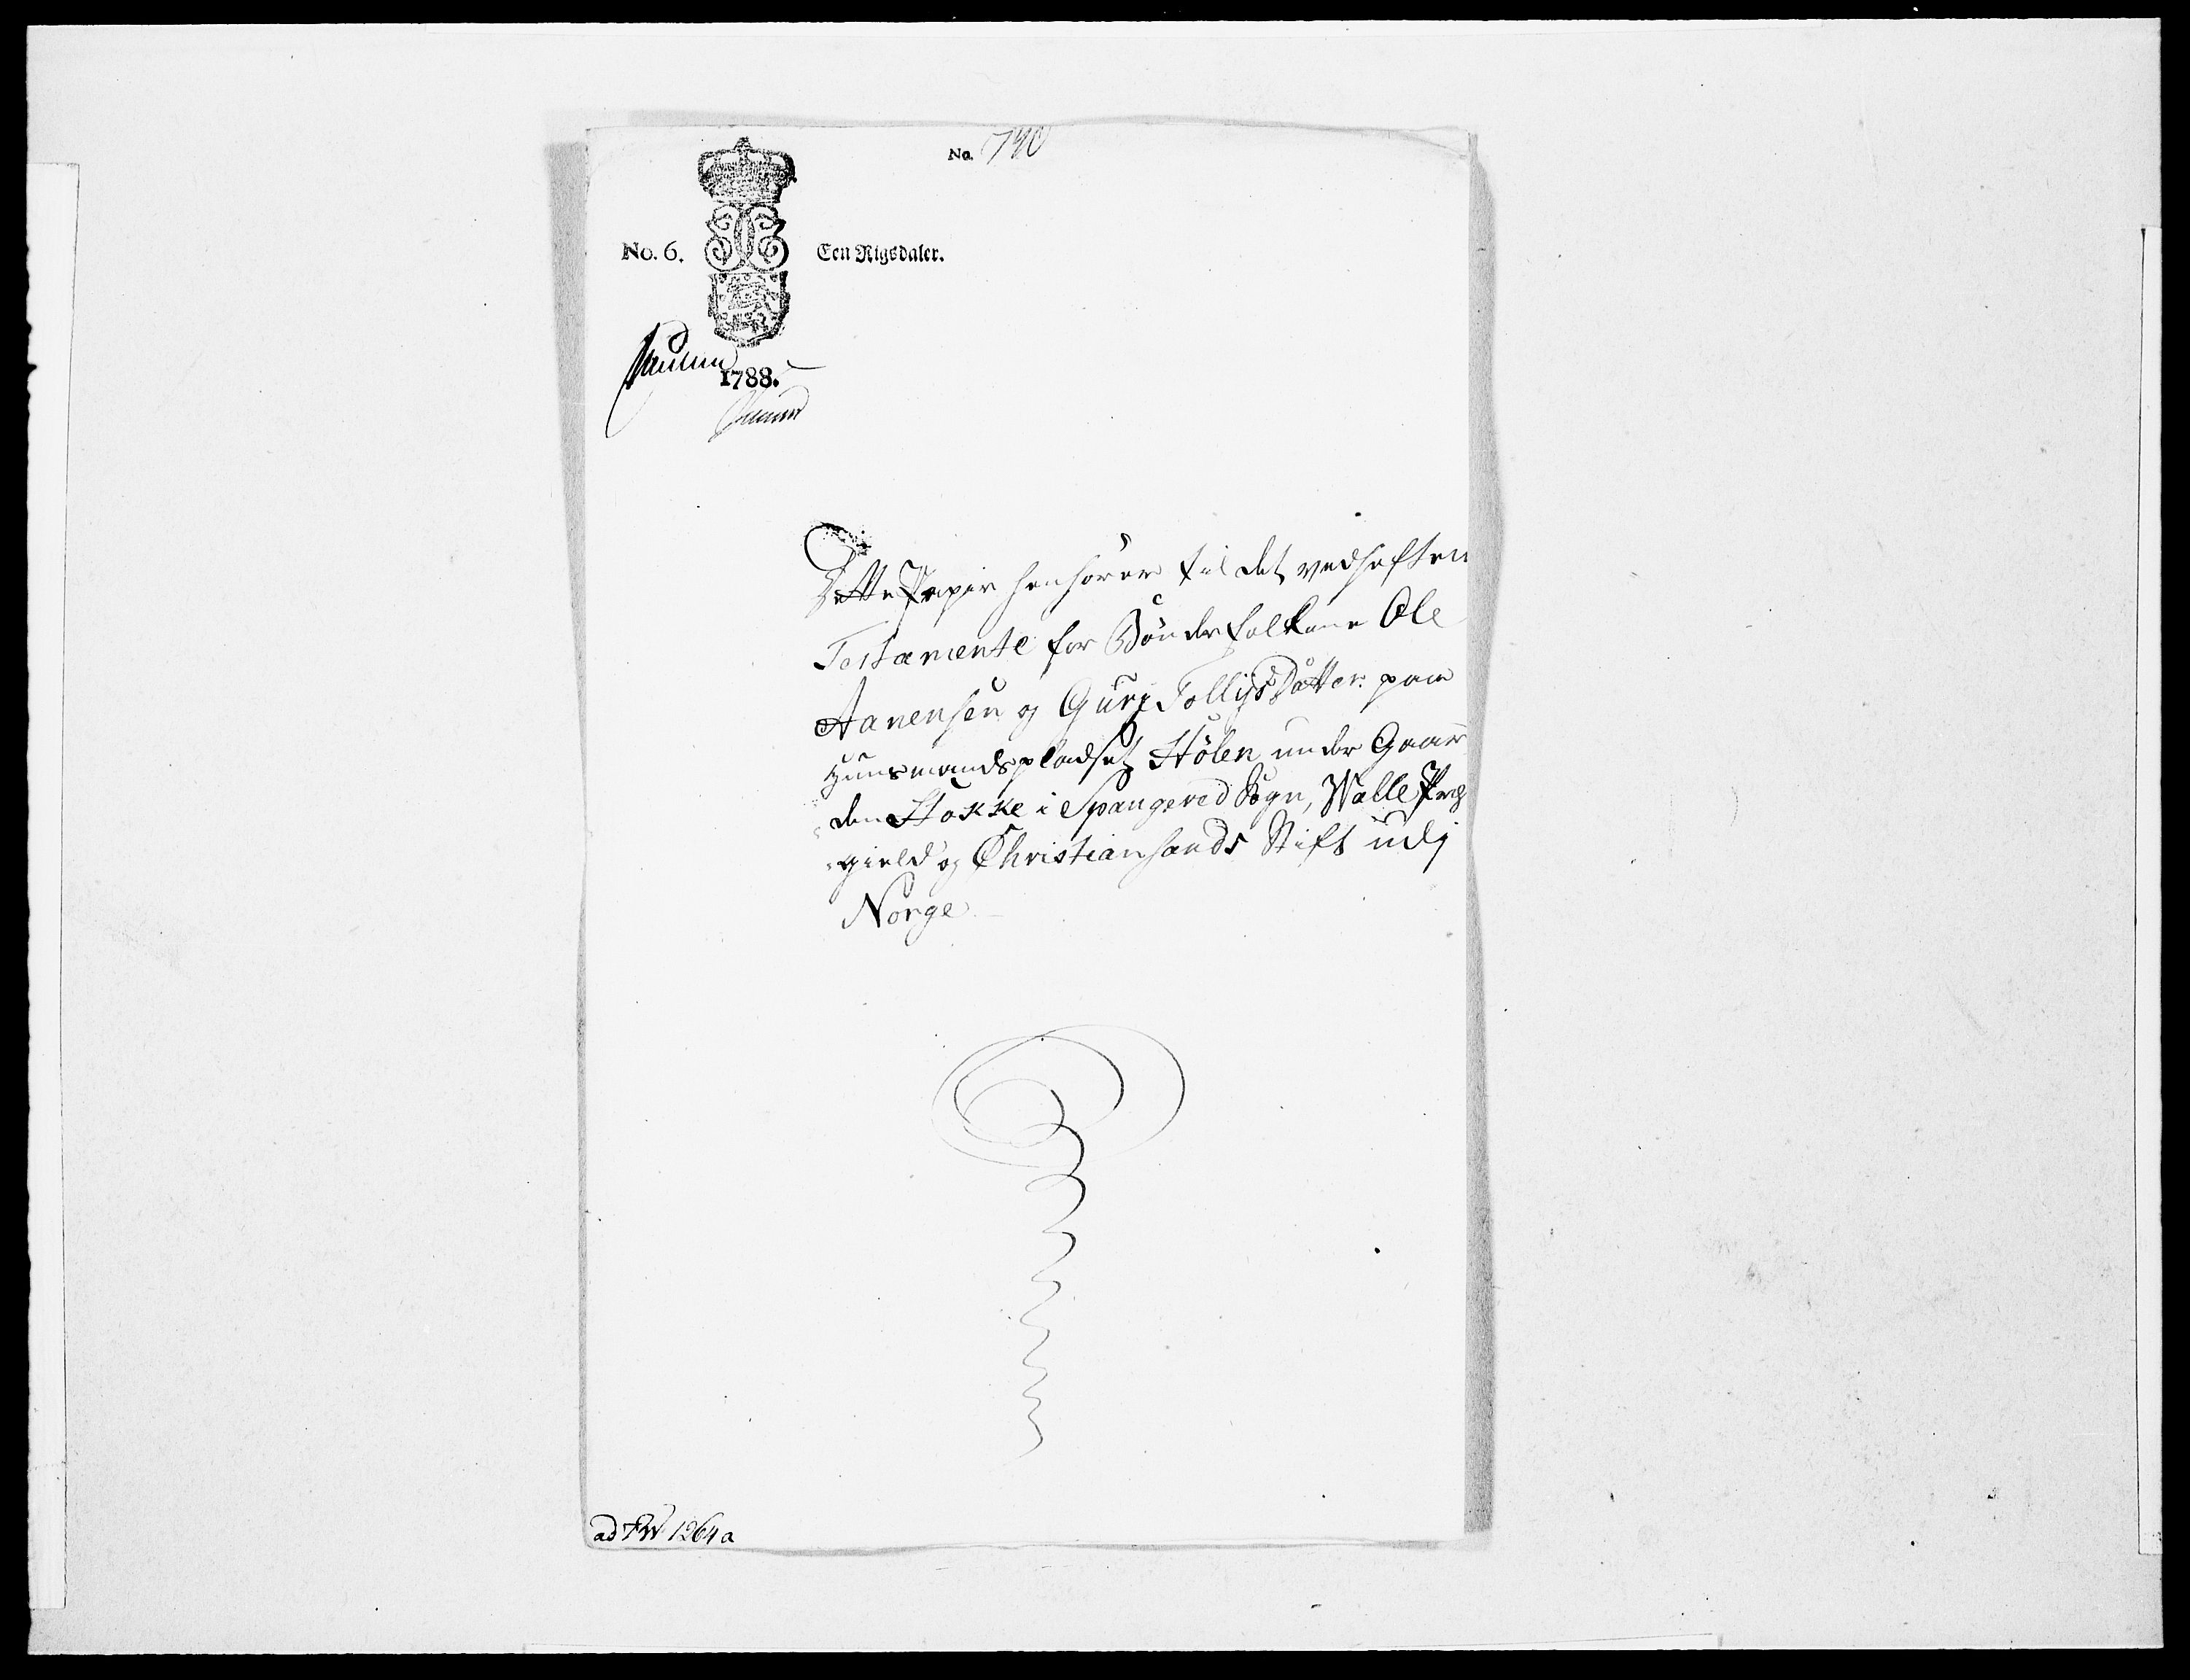 No. 790
No. 6. Een Rigsdaler.
1788.
Dette Papir henhörer til det vedheften
Testamente for Bönderfolkene Ole
Aanensen og Gurj Tollijsdatter paa
Huusmandspladset Hölen under Gaar
den Stokke i Spangered Sogn, Walle Præ
gield og Christiansands Stift udj
Norge
ad 1264a